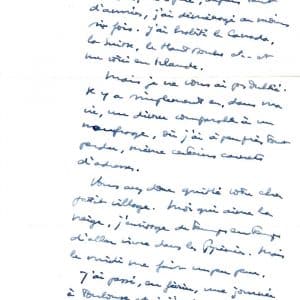 d'années, j'ai déménagé au moins
six fois. J'ai habité le Canada,
la Suisse, le Haut-Doubs et
un été en Islande.
Mais je ne vous ai pas oublié.
Il y a simplement eu, dans ma
vie, un divorce comparable à un
naufrage, où j'ai à peu près tout
perdu, même certains carnets
d'adresses.
Vous avez donc quitté votre cher
petit village. Moi qui aime la
neige, j'envisage de temps en temps
d'aller vivre dans les Pyrénées. Mais
la solitude me fait un peu peur.
J'ai passé, en février, une journée
à Toulouse